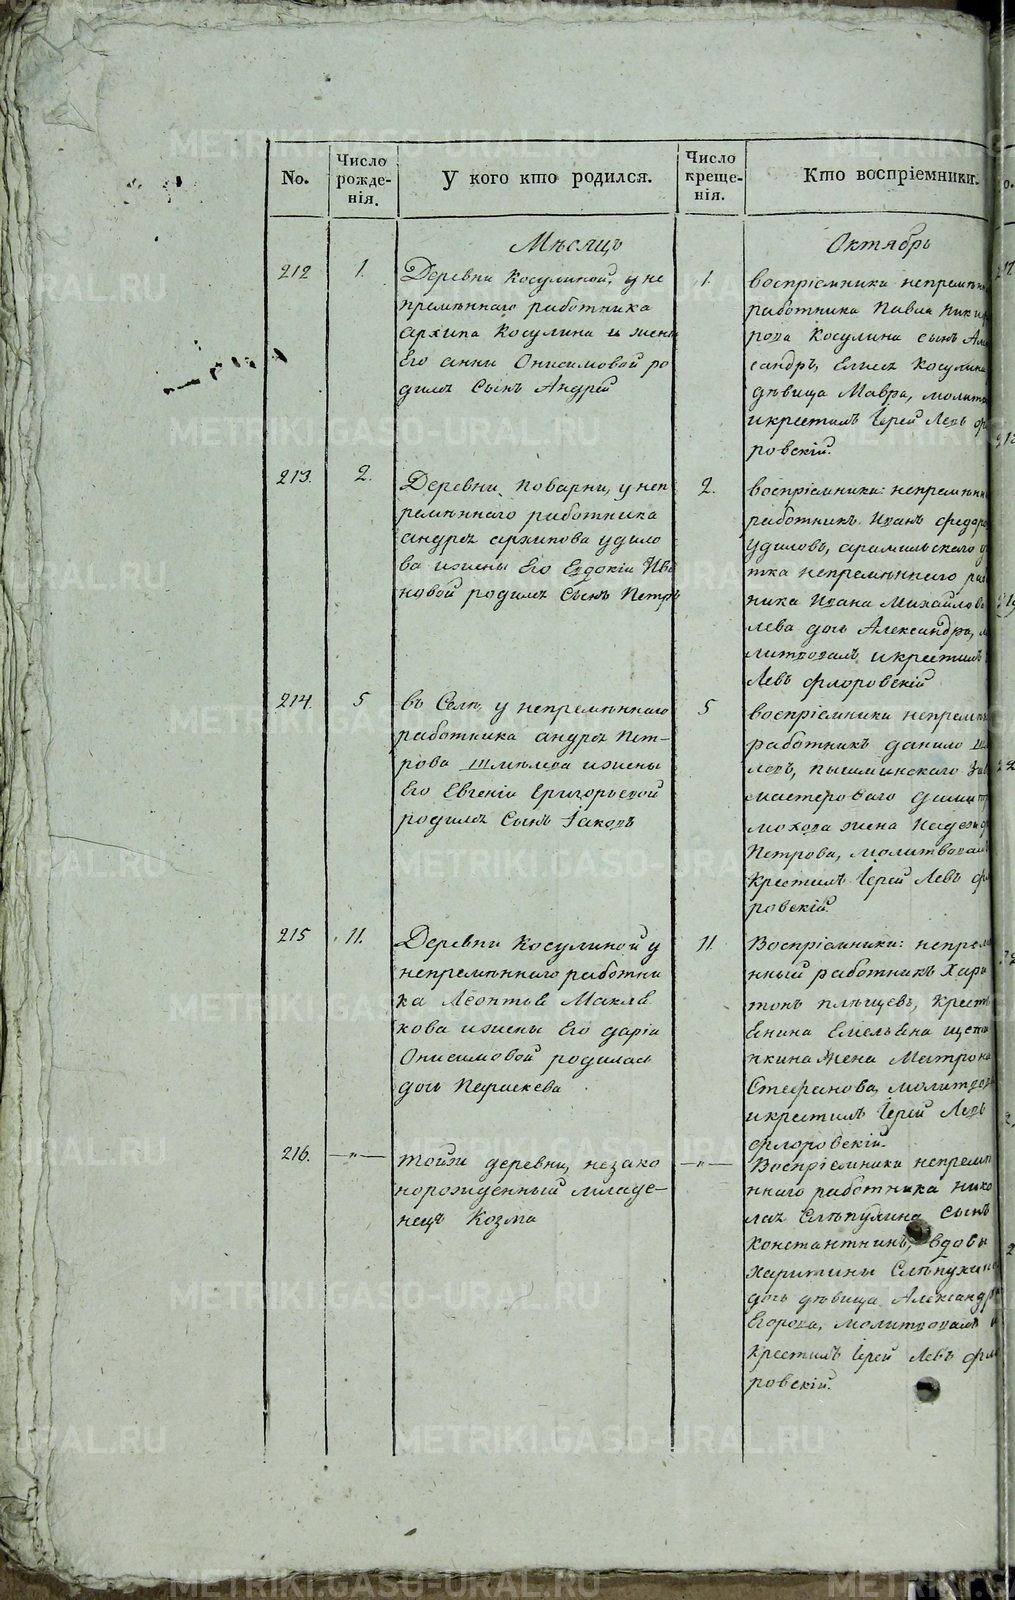 No.
Число рожде-нія.
У кого кто родился.
Число креще-нія.
Кто воспріемники.
Мѣсяцъ
Октябрь
212
1.
Деревни Косулиной, у не
премѣннаго работника
архипа Косулина и жены
Его анны Онисимовой ро
дилъ Сынъ Андрей
1.
воспріемники непремѣн
работника Павла Ники
рова Косулина сынъ Але
сандръ, Косулина
дѣвица Мавра, молитв
икрестилъ Іерей Левъ фл
ровскій.
213.
2.
Деревни Поварни, у неп
ремѣннаго работника
андрея архипова удило
ва ижены Его Евдокіи Ива
новой родилъ Сынъ Петръ
2.
воспріемники: непремѣнн
работникъ Иванъ федоро
Удиловъ, арамильскаго у
тка непремѣннаго раб
ника Ивана Михайлова
лева дочь Александра, м
литвовалъ икрестилъ
Левъ флоровскій
214.
5
въ Селѣ, у непремѣннаго
работника андрея Пет-
рова Шмѣлева ижены
Его Евгеніи Григорьевой
родилъ Сынъ Іаковъ
5
воспріемники непремѣн
работникъ данило Шм
левъ, пышминскаго Зав
мастероваго
мохова жена Надежд
Петрова, молитвовалъ
Крестилъ Іерей Левъ фл
ровскій.
215
11.
Деревни Косулиной у
непремѣннаго работни
ка Леонтья Макла
кова ижены Его даріи
Онисимовой родилась
дочь Параскева
11.
Воспріемники: непрем
нный работникъ Хари
тонъ плѣщевъ, Крест
янина Емельяна щепо
чкина Жена Матрона
Стефанова, молитвова
икрестилъ Іерей Левъ
флоровскій.
216.
—„—
тойжи деревни, незако
норожденный младе-
нецъ Козма
—„—
Воспріемники непремѣ
ннаго работника нико
лая Слѣпухина Сынъ
константинъ, вдовы
Харитины Слѣпухино
дочь дѣвица Александра
Егорова, молитвовалъ и
крестилъ Іерей Левъ фло
ровскій.
METRIKI.GASO-URAL.RU